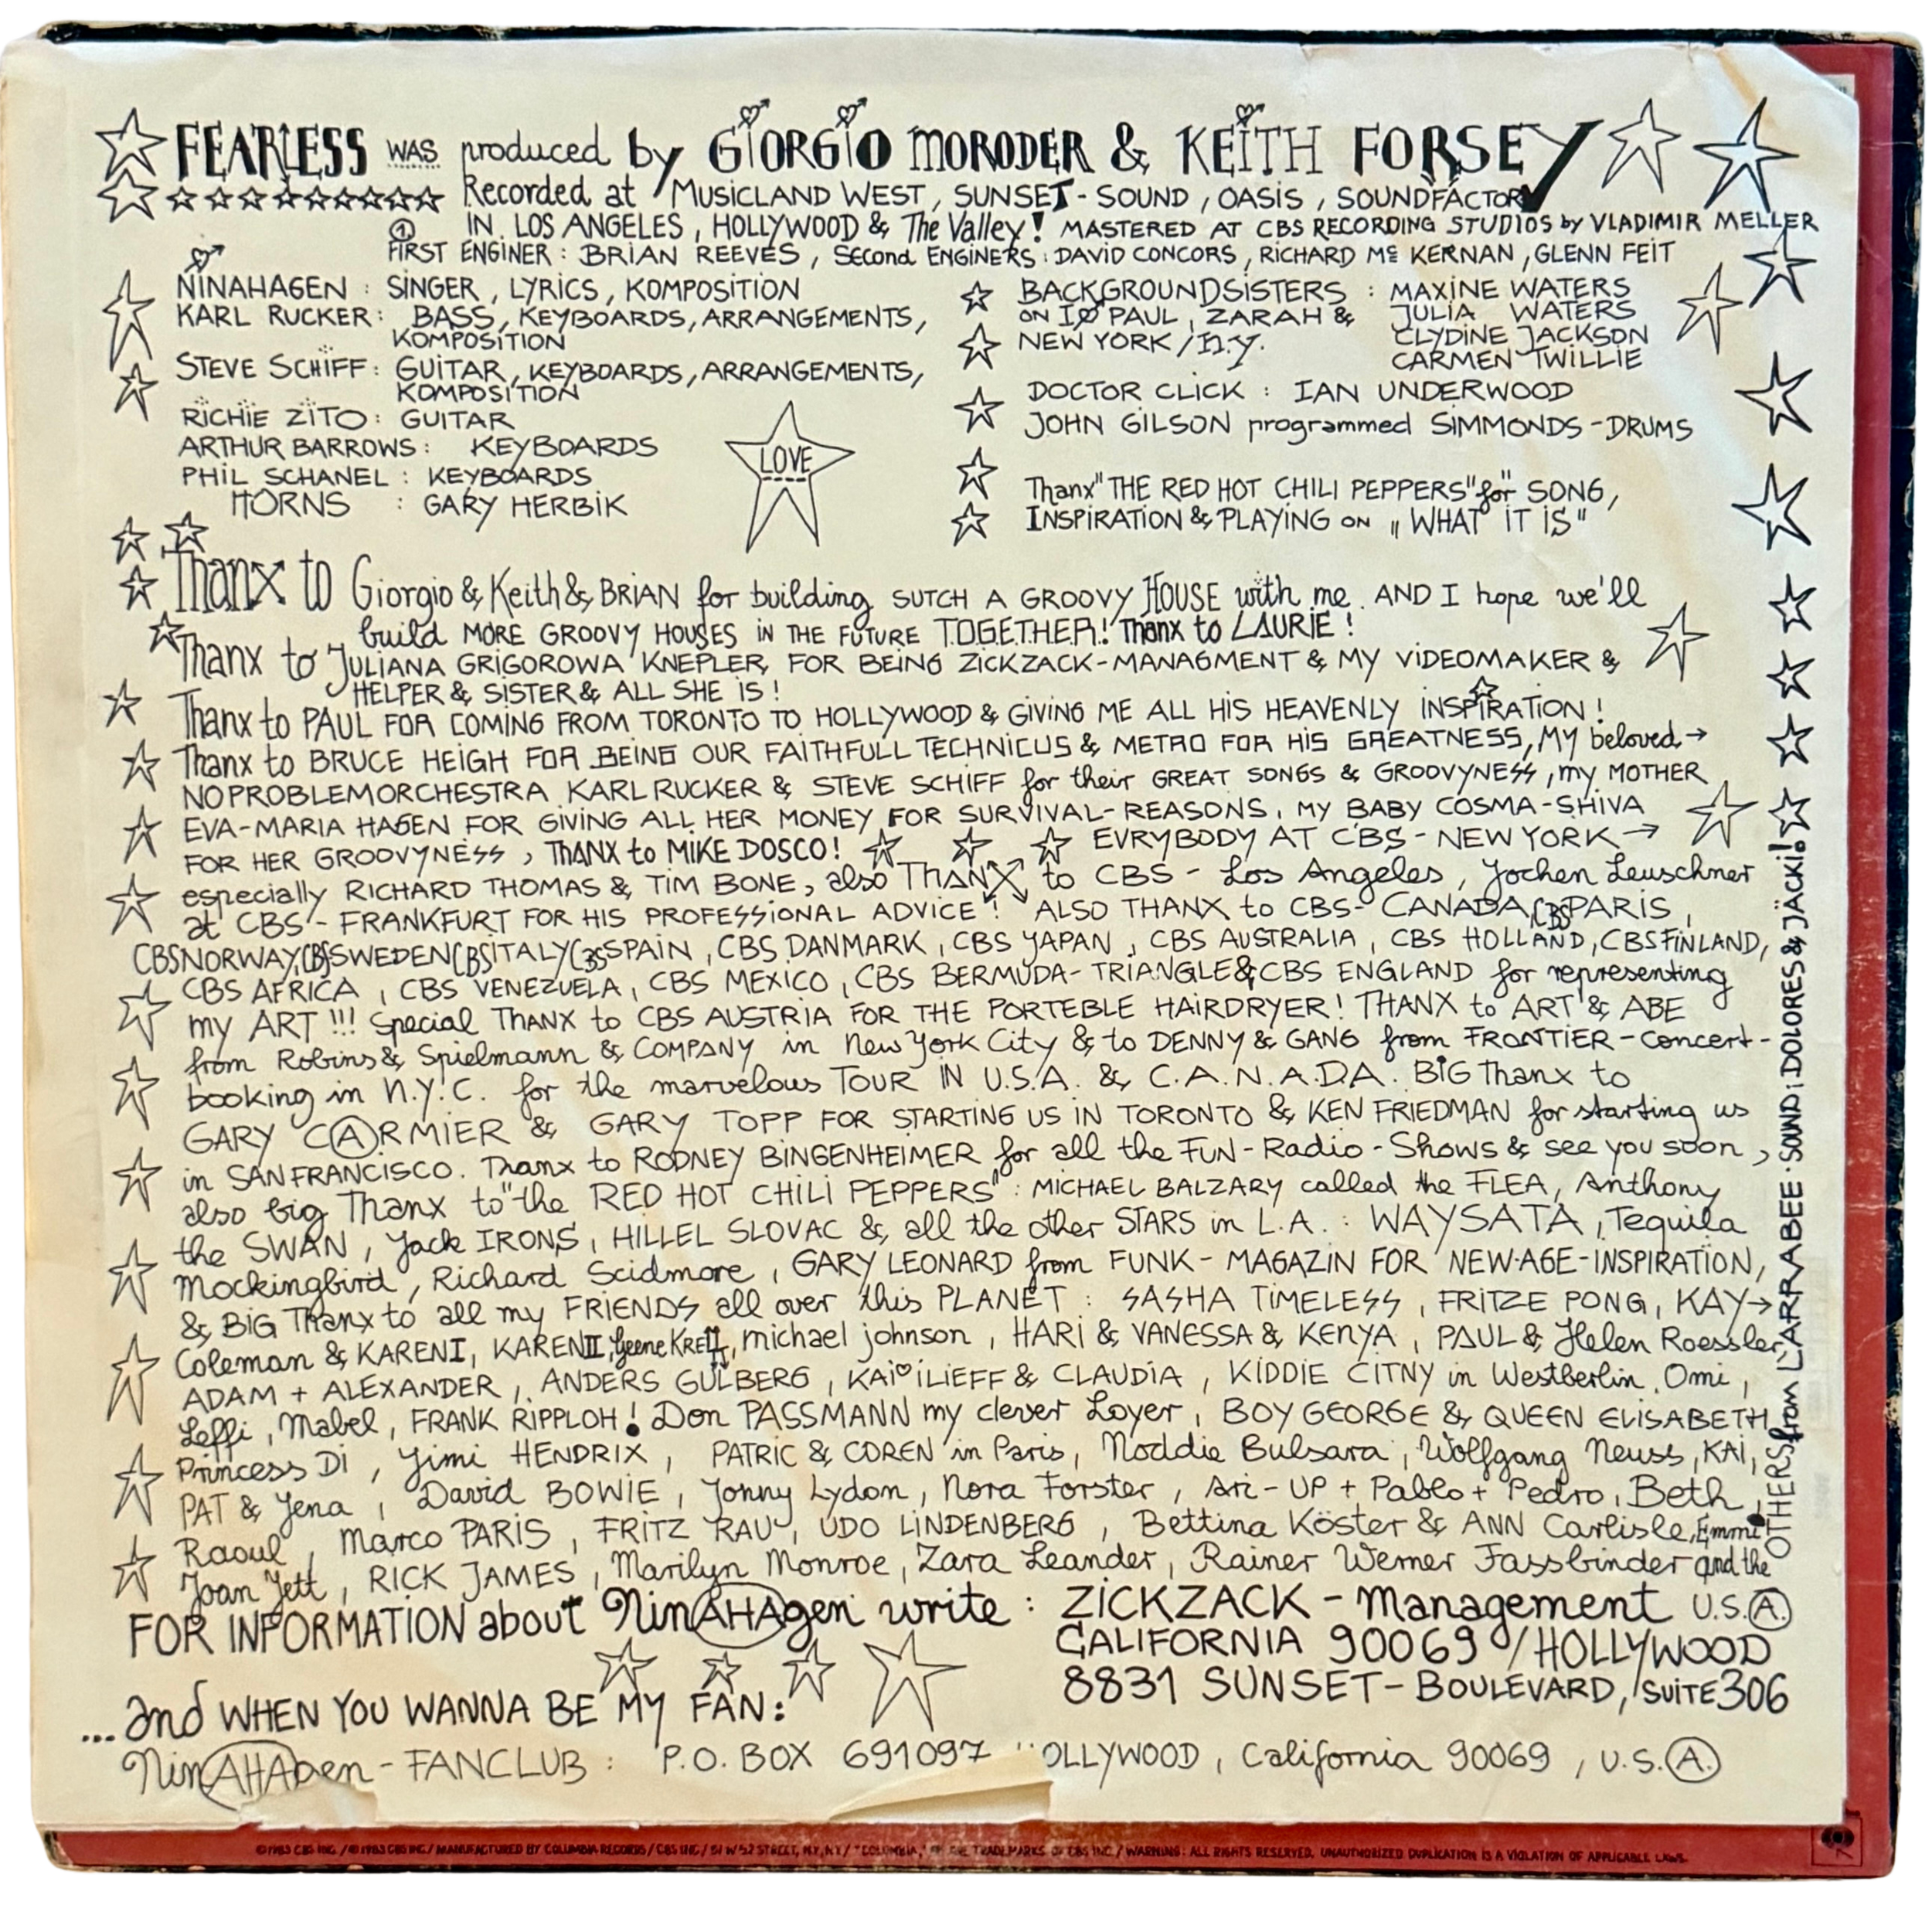 FEARLESS WAS produced by GIORGIO MORODER & KEITH FORSEY
Recorded at MUSICLAND WEST, SUNSET-SOUND, OASIS, SOUNDFACTORY
IN LOS ANGELES, HOLLYWOOD & The Valley! MASTERED AT CBS RECORDING STUDIOS by VLADIMIR MELLER
① FIRST ENGINER: BRIAN REEVES, Second ENGINERS: DAVID CONCORS, RICHARD Mc KERNAN, GLENN FEIT
NINAHAGEN: SINGER, LYRICS, KOMPOSITION
KARL RUCKER: BASS, KEYBOARDS, ARRANGEMENTS,
KOMPOSITION
STEVE SCHIFF: GUITAR, KEYBOARDS, ARRANGEMENTS,
KOMPOSITION
RICHIE ZITO: GUITAR
ARTHUR BARROWS: KEYBOARDS
PHIL SCHANEL: KEYBOARDS
HORNS: GARY HERBIK
LOVE
BACKGROUNDSISTERS: MAXINE WATERS
ON PAUL, ZARAH & JULIA WATERS
NEW YORK/N.Y. CLYDINE JACKSON
CARMEN TWILLIE
DOCTOR CLICK: IAN UNDERWOOD
JOHN GILSON programmed SIMMONDS-DRUMS
Thanx "THE RED HOT CHILI PEPPERS" for SONG,
INSPIRATION & PLAYING ON „WHAT IT IS"
Thanx to Giorgio & Keith & BRIAN for building SUTCH A GROOVY HOUSE with me. AND I hope we'll
build MORE GROOVY HOUSES IN THE FUTURE T.O.G.E.T.H.E.R.! Thanx to LAURIE!
Thanx to JULIANA GRIGOROWA KNEPLER, FOR BEING ZICKZACK-MANAGMENT & MY VIDEOMAKER &
HELPER & SISTER & ALL SHE IS!
Thanx to PAUL FOR COMING FROM TORONTO TO HOLLYWOOD & GIVING ME ALL HIS HEAVENLY INSPIRATION!
Thanx to BRUCE HEIGH FOR BEING OUR FAITHFULL TECHNICUS & METRO FOR HIS GREATNESS, MY beloved→
NOPROBLEMORCHESTRA KARL RUCKER & STEVE SCHIFF for their GREAT SONGS & GROOVYNESS, my MOTHER
EVA-MARIA HAGEN FOR GIVING ALL HER MONEY FOR SURVIVAL-REASONS, MY BABY COSMA-SHIVA
FOR HER GROOVYNESS, THANX to MIKE DOSCO! EVRYBODY AT CBS-NEW YORK→
especially RICHARD THOMAS & TIM BONE, also THANX to CBS-Los Angeles, Jochen Leuschner
at CBS-FRANKFURT FOR HIS PROFESSIONAL ADVICE! ALSO THANX to CBS-CANADA, CBS PARIS,
CBS NORWAY, CBS SWEDEN CBS ITALY CBS SPAIN, CBS DANMARK, CBS YAPAN, CBS AUSTRALIA, CBS HOLLAND, CBS FINLAND,
CBS AFRICA, CBS VENEZUELA, CBS MEXICO, CBS BERMUDA-TRIANGLE & CBS ENGLAND for representing
my ART!!! Special THANX to CBS AUSTRIA FOR THE PORTEBLE HAIRDRYER! THANX to ART & ABE
from Robins & Spielmann & COMPANY in New York City & to DENNY & GANG from FRONTIER-concert-
booking in N.Y.C. for the marvelous TOUR IN U.S.A. & C.A.N.A.D.A. BIG Thanx to
GARY CARMIER & GARY TOPP FOR STARTING US IN TORONTO & KEN FRIEDMAN for starting us
in SAN FRANCISCO. Thanx to RODNEY BINGENHEIMER for all the FUN-Radio-Shows & see you soon,
also big Thanx to "the RED HOT CHILI PEPPERS": MICHAEL BALZARY called the FLEA, Anthony
the SWAN, Jack IRONS, HILLEL SLOVAC & all the other STARS in L.A.: WAYSATA, Tequila
Mockingbird, Richard Scidmore, GARY LEONARD from FUNK-MAGAZIN FOR NEW-AGE-INSPIRATION,
& BIG Thanx to all my FRIENDS all over this PLANET: SASHA TIMELESS, FRITZE PONG, KAY→
Coleman & KAREN I, KAREN II, michael johnson, HARI & VANESSA & KENYA, PAUL & Helen Roessler,
ADAM + ALEXANDER, ANDERS GULBERG, KAI ILIEFF & CLAUDIA, KIDDIE CITNY in Westberlin, Omi,
Leffi, Mabel, FRANK RIPPLOH! Don PASSMANN my clever Loyer, BOY GEORGE & QUEEN ELISABETH
Princess DI, Jimi HENDRIX, PATRIC & COREN in Paris, Noddie Bulsara, Wolfgang Neuss, KAI,
PAT & Jena, David BOWIE, Jonny Lydon, Nora Forster, Ari-UP + Pablo + Pedro, Beth,
Raoul, Marco PARIS, FRITZ RAU, UDO LINDENBERG, Bettina Köster & ANN Carlisle, Emmi
Joan Jett, RICK JAMES, Marilyn Monroe, Zara Leander, Rainer Werner Fassbinder and the
OTHERS from L'ARRABEE-SOUND: DOLORES & JACKI!
FOR INFORMATION about NinAHAgen write: ZICKZACK-Management U.S.A.
CALIFORNIA 90069/HOLLYWOOD
8831 SUNSET-BOULEVARD, SUITE 306
...and WHEN YOU WANNA BE MY FAN:
NinAHAgen-FANCLUB: P.O. BOX 691097 HOLLYWOOD, California 90069, U.S.A.
© 1983 CBS INC./℗ 1983 CBS INC./ MANUFACTURED BY COLUMBIA RECORDS/CBS INC./51 W 52 STREET, N.Y., N.Y./ "COLUMBIA," ARE TRADEMARKS OF CBS INC./ WARNING: ALL RIGHTS RESERVED. UNAUTHORIZED DUPLICATION IS A VIOLATION OF APPLICABLE LAWS.